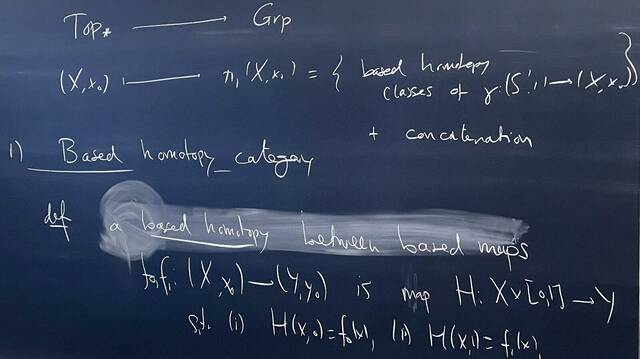 Top* ⟶ Grp
(X, x₀) ⟼ π₁(X, x₀) = { based homotopy
classes of γ: (S¹, 1) → (X, x₀) }
+ concatenation
1) Based homotopy category
def a based homotopy between based maps
f₀, f₁: (X, x₀) → (Y, y₀) is map H: X × [0,1] → Y
s.t. (i) H(x,0) = f₀(x), (ii) H(x,1) = f₁(x),